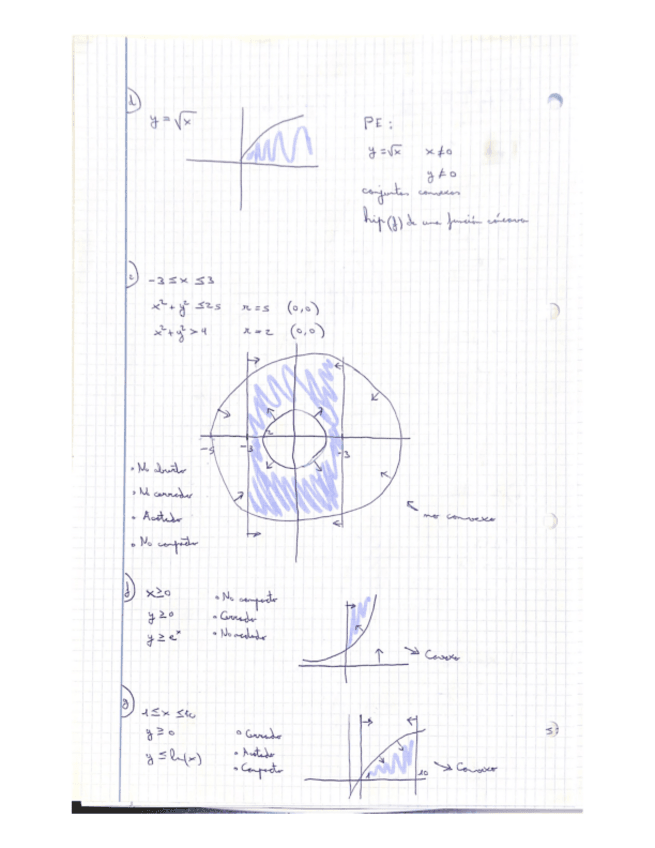 d)
y = √x
PE:
y = √x x ≠ 0
y ≠ 0
conjuntos convexos
hip(f) de una función cóncava
e)
-3 ≤ x ≤ 3
x² + y² ≤ 25 r = 5 (0,0)
x² + y² > 4 r = 2 (0,0)
-5 -3 2 -3
• No abierto
• Ni cerrado
• Acotado
• No compacto
no convexo
f)
x ≥ 0 • No compacto
y ≥ 0 • Cerrado
y ≥ eˣ • No acotado
Convexo
g)
y ≥ 0 • Cerrado
y ≤ ln(x) • Acotado
• Compacto
1 10
Convexo